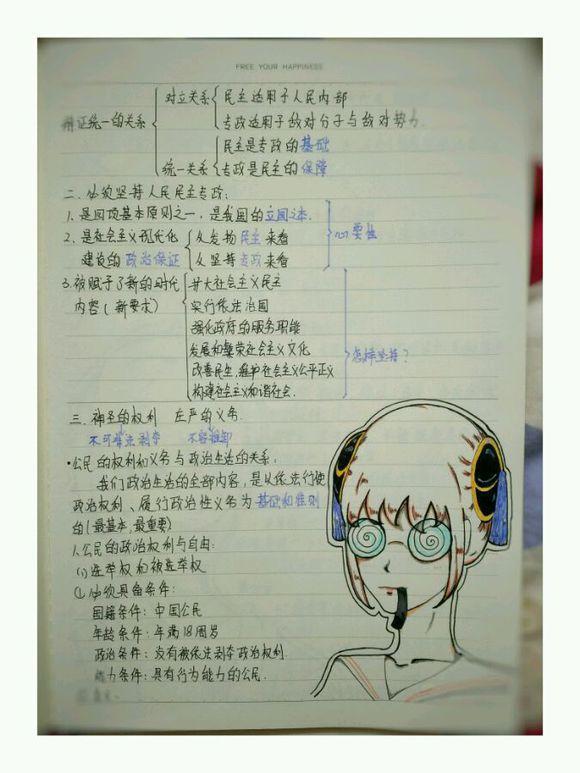 FREE YOUR HAPPINESS
对立关系 民主适用于人民内部
辩证统一的关系 专政适用于敌对分子与敌对势力
民主是专政的基础
统一关系 专政是民主的保障
二、必须坚持人民民主专政:
1. 是四项基本原则之一,是我国的立国之本.
2、是社会主义现代化 从发扬民主来看 必要性
建设的政治保证 从坚持专政来看
3.被赋予了新的时代 扩大社会主义民主
内容(新要求) 实行依法治国
强化政府的服务职能
发展和繁荣社会主义文化
改善民生,维护社会主义公平正义 怎样坚持?
构建社会主义和谐社会.
三、神圣的权利 庄严的义务.
不可非法剥夺 不容推卸
·公民的权利和义务与政治生活的关系:
我们政治生活的全部内容,是以依法行使
政治权利、履行政治性义务为基础和准则
的(最基本,最重要)
1.公民的政治权利与自由:
(1)选举权和被选举权
①必须具备条件:
国籍条件:中国公民
年龄条件:年满18周岁
政治条件:没有被依法剥夺政治权利.
能力条件:具有行为能力的公民.